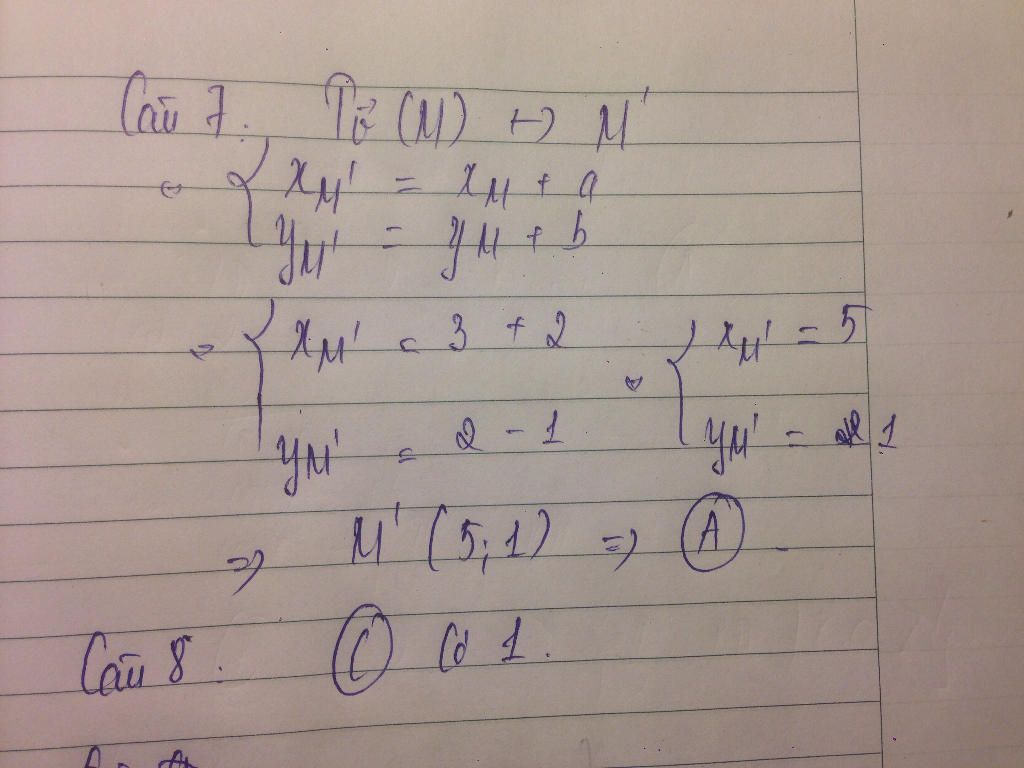 Câu 7. Tv⃗ (M) ↦ M'
⇔ { xM' = xM + a
yM' = yM + b
⇔ { xM' = 3 + 2 ⇔ { xM' = 5
yM' = 2 - 1 yM' = 1
⇒ M' (5;1) ⇒ A.
Câu 8: C Có 1.